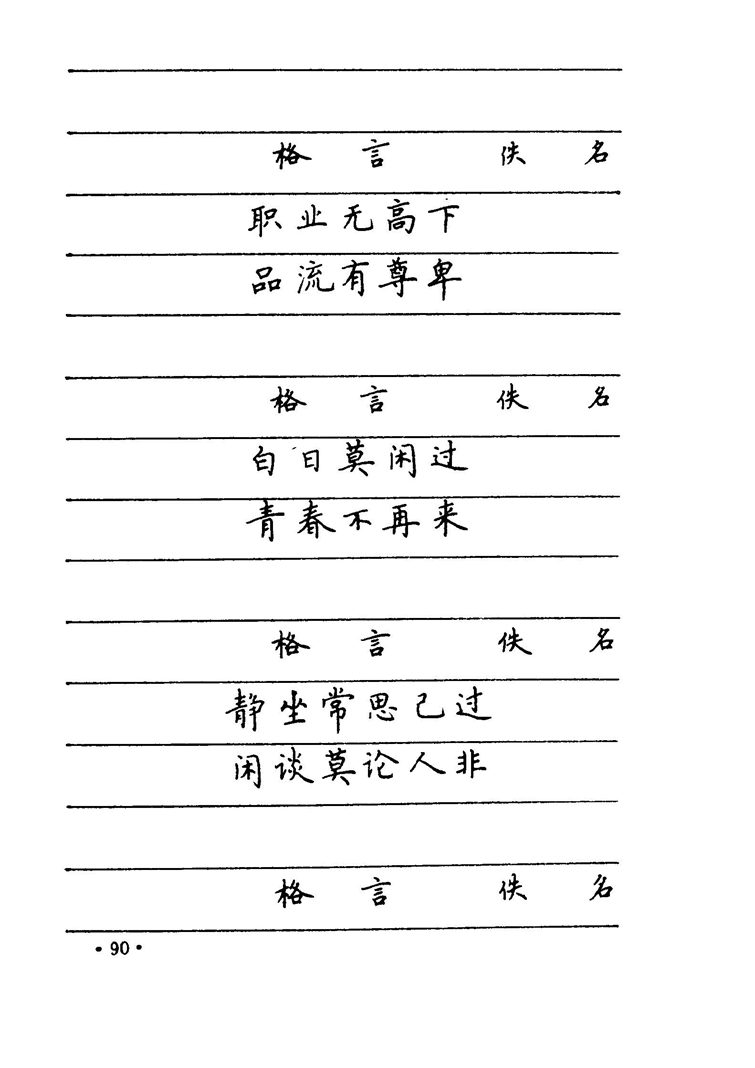 格言 佚名
职业无高下
品流有尊卑
格言 佚名
白日莫闲过
青春不再来
格言 佚名
静坐常思己过
闲谈莫论人非
格言 佚名
·90·